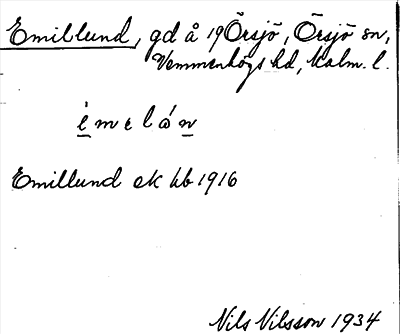 Emillund, gd å 19 Örsjö, Örsjö sn,
Vemmenhögs hd, Malm. l.
è m e l ó n
Emillund ek kb 1916
Nils Nilsson 1934